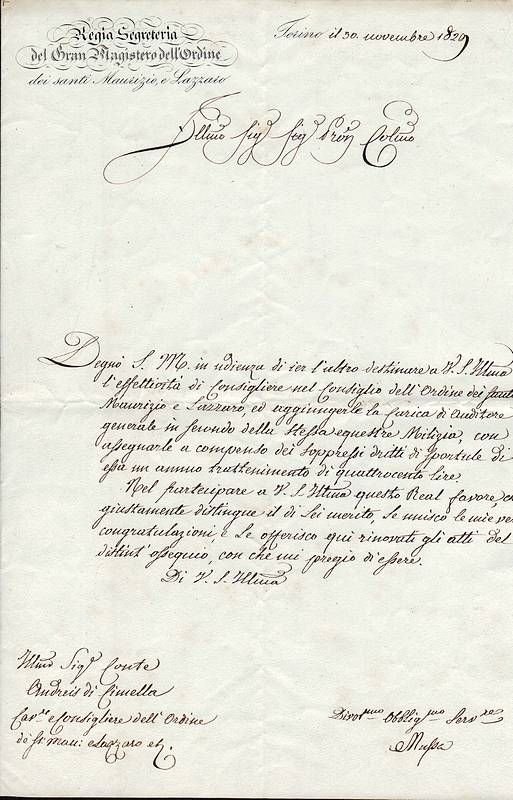 Regia Segreteria
del Gran Magistero dell'Ordine
dei santi Maurizio, e Lazzaro
Torino il 30. novembre 1829
Illmo Sigr Sigr Pron Colmo
Degnò S. M. in udienza di ier l'altro destinare a V. S. Illma
l'effettività di Consigliere nel Consiglio dell'Ordine dei santi
Maurizio e Lazzaro, ed aggiungerle la carica di Auditore
generale in secondo della stessa equestre Milizia, con
assegnarle a compenso dei soppressi dritti di sportule di
essa un annuo trattenimento di quattrocento lire.
Nel partecipare a V. S. Illma questo Real favore, c
giustamente distingue il di Lei merito, Le unisco le mie ve
congratulazioni, e Le offerisco qui rinovati gli atti del
distint' ossequio, con che mi pregio di essere.
Di V. S. Illma
Illmo Sigr Conte
Andreis di Cimella
Cavre e Consigliere dell'Ordine
de' Sti Mau: e Lazzaro etc.
Divotmo Obbligmo Servre
Mussa